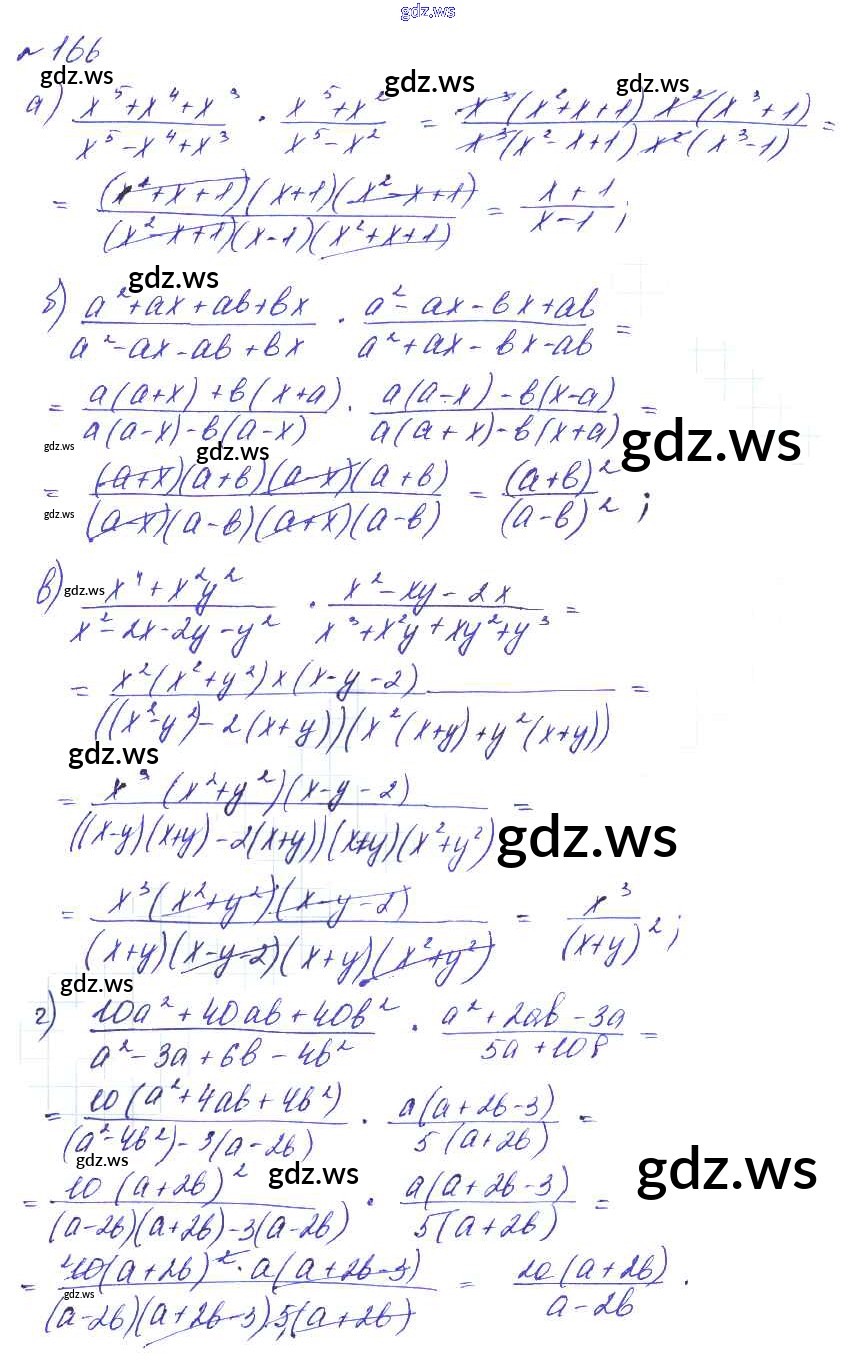 gdz.ws
№166
gdz.ws gdz.ws gdz.ws
а) (x^5+x^4+x^3)/(x^5-x^4+x^3) · (x^5+x^2)/(x^5-x^2) = (x^3(x^2+x+1) x^2(x^3+1))/(x^3(x^2-x+1) x^2(x^3-1)) =
= ((x^2+x+1)(x+1)(x^2-x+1))/((x^2-x+1)(x-1)(x^2+x+1)) = (x+1)/(x-1);
gdz.ws
б) (a^2+ax+ab+bx)/(a^2-ax-ab+bx) · (a^2-ax-bx+ab)/(a^2+ax-bx-ab) =
= (a(a+x)+b(x+a))/(a(a-x)-b(a-x)) · (a(a-x)-b(x-a))/(a(a+x)-b(x+a)) =
gdz.ws gdz.ws gdz.ws
= ((a+x)(a+b)(a-x)(a+b))/((a-x)(a-b)(a+x)(a-b)) = (a+b)^2/(a-b)^2;
gdz.ws
в) gdz.ws (x^4+x^2y^2)/(x^2-2x-2y-y^2) · (x^2-xy-2x)/(x^3+x^2y+xy^2+y^3) =
= (x^2(x^2+y^2)x(x-y-2))/(((x^2-y^2)-2(x+y))(x^2(x+y)+y^2(x+y))) =
gdz.ws
= (x^3(x^2+y^2)(x-y-2))/(((x-y)(x+y)-2(x+y))(x+y)(x^2+y^2)) =
gdz.ws
= (x^3(x^2+y^2)(x-y-2))/((x+y)(x-y-2)(x+y)(x^2+y^2)) = x^3/(x+y)^2;
gdz.ws
г) (10a^2+40ab+40b^2)/(a^2-3a+6b-4b^2) · (a^2+2ab-3a)/(5a+10b) =
= (10(a^2+4ab+4b^2))/((a^2-4b^2)-3(a-2b)) · (a(a+2b-3))/(5(a+2b)) =
gdz.ws gdz.ws gdz.ws
= (10(a+2b)^2)/((a-2b)(a+2b)-3(a-2b)) · (a(a+2b-3))/(5(a+2b)) =
= (10(a+2b)^2·a(a+2b-3))/((a-2b)(a+2b-3)5(a+2b)) = (2a(a+2b))/(a-2b).
gdz.ws